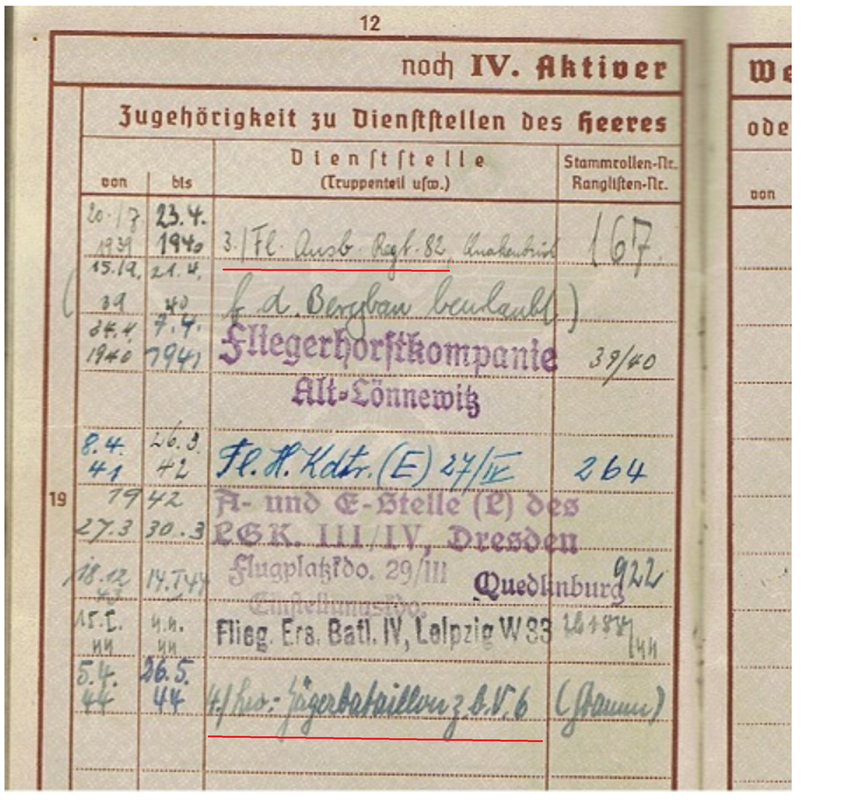 12
noch IV. Aktiver
We
Zugehörigkeit zu Dienststellen des Heeres
ode
Dienststelle
Stammrollen-Nr.
von bis (Truppenteil usw.) Ranglisten-Nr.
von
20. 7. 23.4.
1939 1940 3./Fl. Ausb. Regt. 82, 167.
21.4.
( 39 40 f. d. Bergbau beurlaubt )
24.4. 7.4.
1940 1941 Fliegerhorstkompanie 39/40
Alt-Lönnewitz
8.4. 26.3.
41 42 Fl. H. Kdtr. (E) 27/IV 264
19 1942 A- und E-Stelle (L) des
27.3 30.3 LGK. III/IV, Dresden
18.12 14.I.44 Flugplatzkdo. 29/III Quedlinburg 922
43
15.I. 4.4.
44 44 Flieg. Ers. Batl. IV, Leipzig W33
5.4. 26.5.
44 44 4./ Jägerbataillon z.b.V. 6